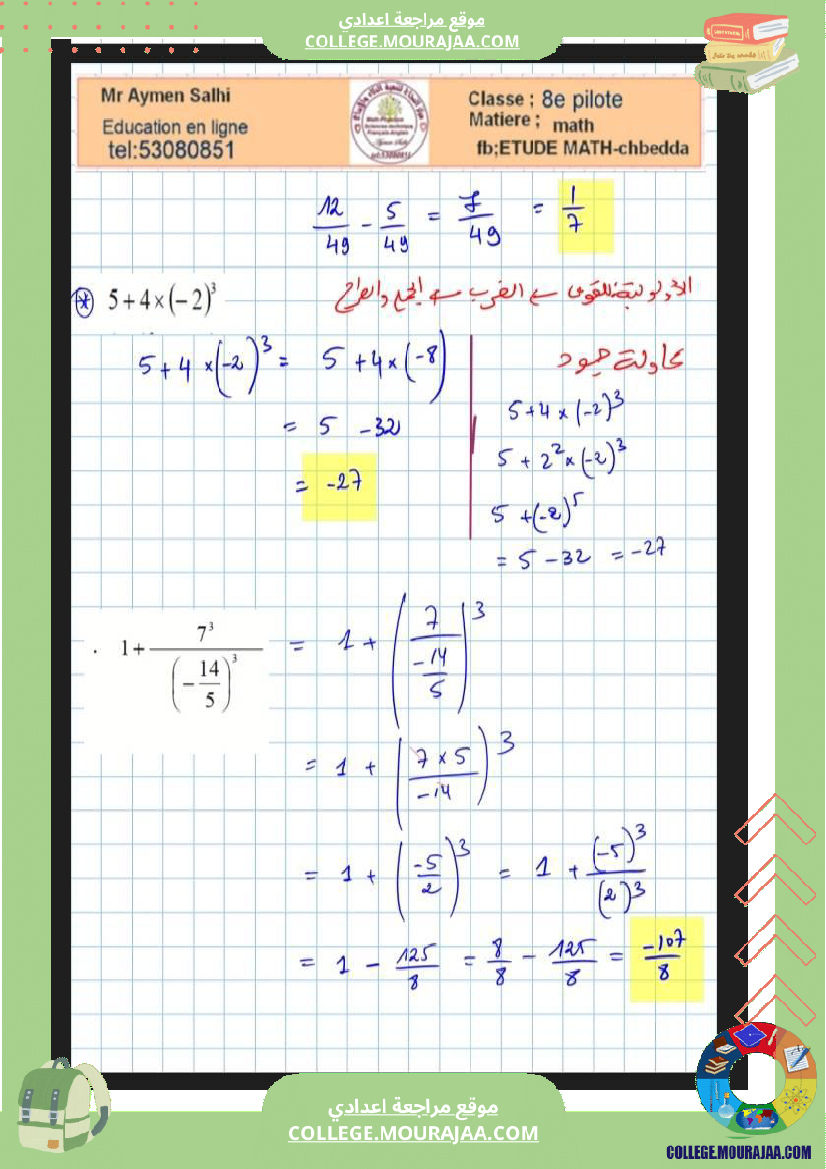 موقع مراجعة اعدادي
COLLEGE.MOURAJAA.COM
Mr Aymen Salhi
Education en ligne
tel:53080851
Classe ; 8e pilote
Matiere ; math
fb;ETUDE MATH-chbedda
12/49 - 5/49 = 7/49 = 1/7
الأولوية للقوى ثم الضرب ثم الجمع والطرح
5+4×(−2)³
5+4×(-2)³ = 5+4×(-8)
= 5 -32
= -27
محاولة
5+4×(-2)³
5+2²×(-2)³
5+(-2)⁵
= 5-32 = -27
. 1+ 7³/(−14/5)³ = 1+(7/(-14/5))³
= 1+((7×5)/-14)³
= 1+(-5/2)³ = 1+(-5)³/(2)³
= 1 - 125/8 = 8/8 - 125/8 = -107/8
موقع مراجعة اعدادي
COLLEGE.MOURAJAA.COM
COLLEGE.MOURAJAA.COM